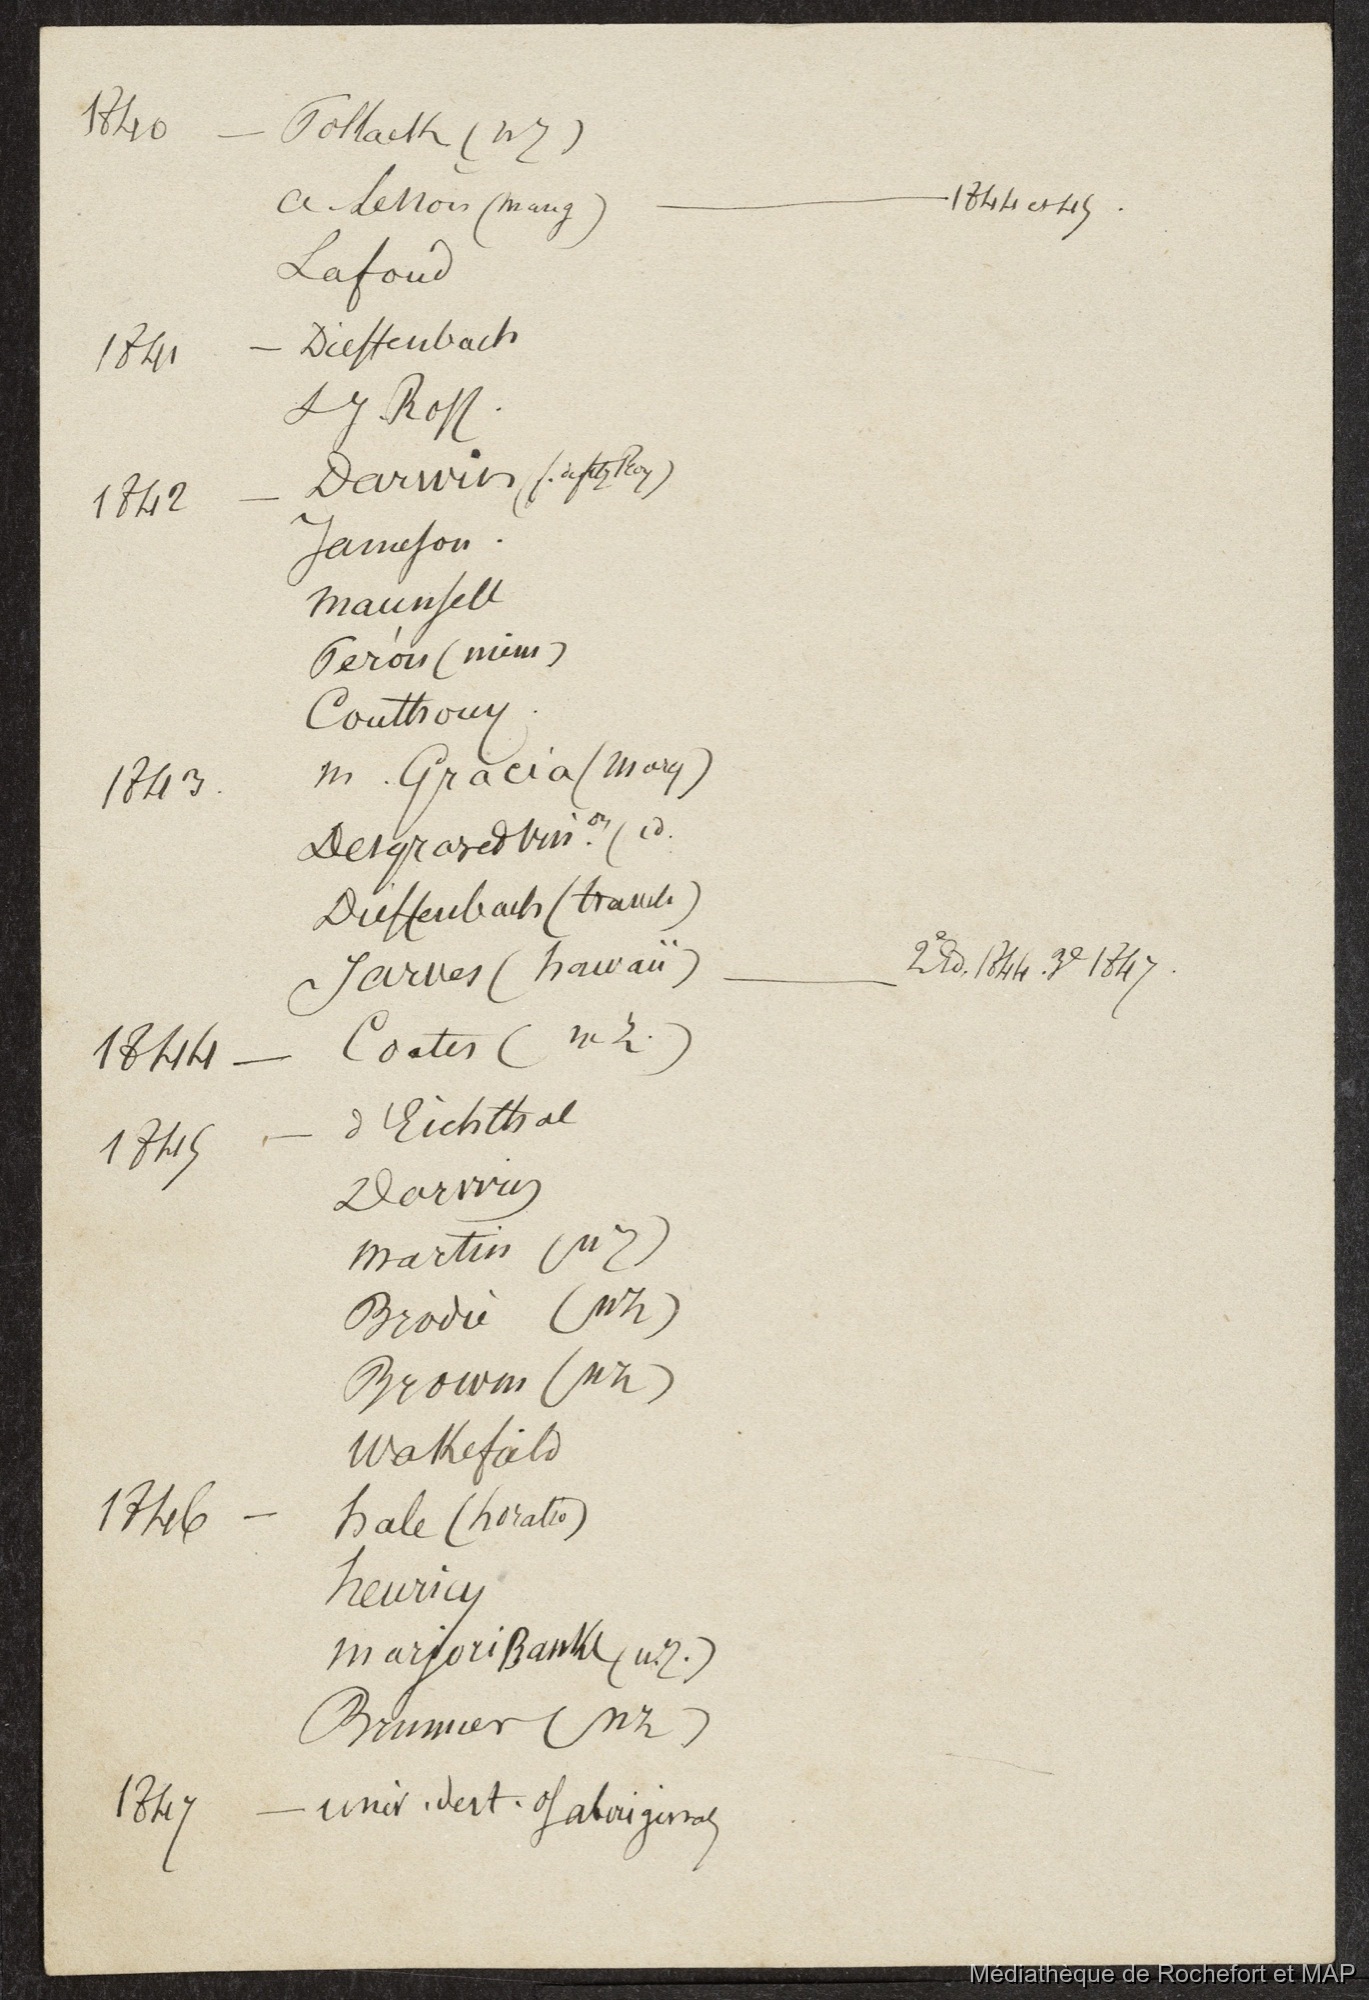 1840 — Pollack (nz)
a. Lesson (mang) — 1844 et 45.
Lafond
1841 — Dieffenbach
Ross.
1842 — Darwin (. de fitz Roy)
Jameson.
maunsell
Peron (mém)
Couthouy.
1843. m. Gracia (marq)
Desgraz et Vin.on (id.
Dieffenbach (travels)
Jarves (hawaii) — 2e Ed. 1844. 3e 1847.
1844 — Coates (nz.)
1845 — d'Eichthal
Darwin
martin (nz)
Brodie (nz)
Brown (nz)
wakefield
1846 — hale (horatio)
henricy
marjoriBanks (nz.)
Brunner (nz)
1847 — univ. dest. of aboriginals
Médiathèque de Rochefort et MAP